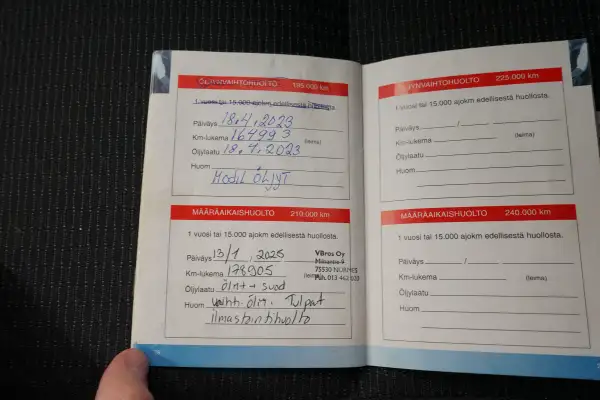 ÖLJYNVAIHTOHUOLTO 195.000 km
1 vuosi tai 15.000 ajokm edellisestä huollosta.
Päiväys 18.4.2023
Km-lukema 164993
(leima)
Öljylaatu 18.4.2023
Huom
MOBIL ÖLJYT
MÄÄRÄAIKAISHUOLTO 210.000 km
1 vuosi tai 15.000 ajokm edellisestä huollosta.
Päiväys 13/1, 2025
Km-lukema 178905
Öljylaatu öljyt + suod
Huom vaiht. öljy. Tulpat
ilmastointihuolto
VBros Oy
75530 NURMES
Puh. 013 462 020
YNVAIHTOHUOLTO 225.000 km
1 vuosi tai 15.000 ajokm edellisestä huollosta.
Päiväys /
Km-lukema
(leima)
Öljylaatu
Huom
MÄÄRÄAIKAISHUOLTO 240.000 km
1 vuosi tai 15.000 ajokm edellisestä huollosta.
Päiväys /
Km-lukema
(leima)
Öljylaatu
Huom